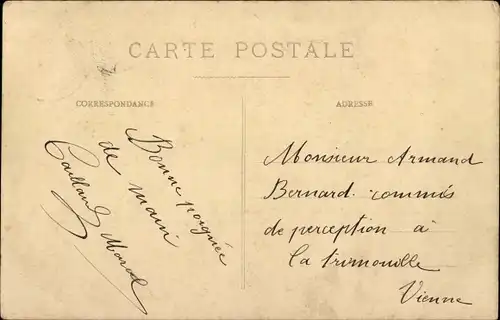 CARTE POSTALE
CORRESPONDANCE
Bonne poignée
de main
Marcel
ADRESSE
Monsieur Armand
Bernard commis
de perception à
la trimouille
Vienne